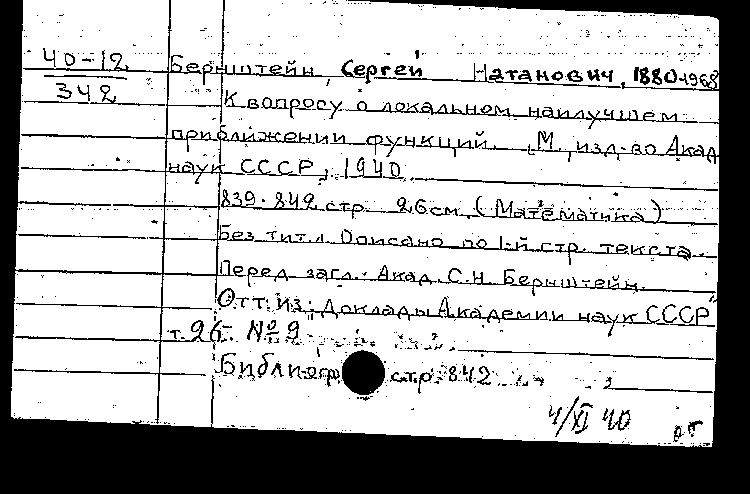 40-12
342
Бернштейн, Сергей Натанович, 1880-1968
К вопросу о локальном наилучшем
приближении функций. М., изд-во Акад
наук СССР, 1940.
839-842 стр. 26 см. (Математика)
Без тит.л. Описано по 1-й стр. текста.
Перед загл.: Акад. С.Н. Бернштейн.
Отт. из: Доклады Академии наук СССР"
т. 26. № 9
Библиогр. стр. 842
4/XI 40